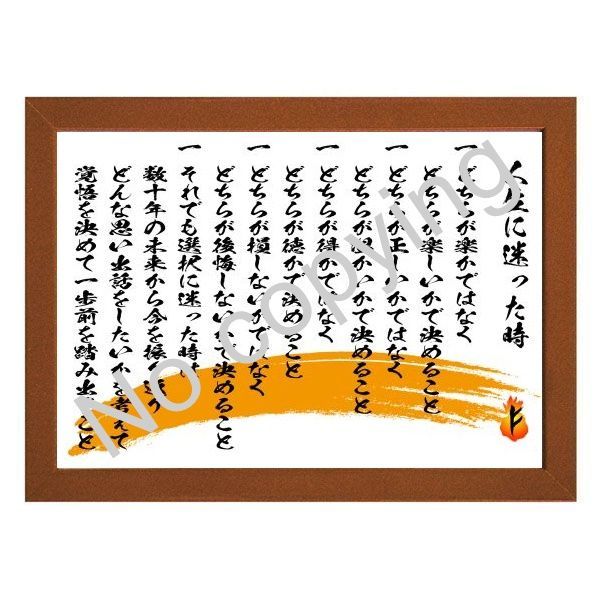 人生に迷った時
一 どちらが楽かではなく
どちらが楽しいかで決めること
一 どちらが正しいかではなく
どちらが温かいかで決めること
一 どちらが得かではなく
どちらが徳かで決めること
一 どちらが損しないかではなく
どちらが後悔しないかで決めること
一 それでも選択に迷った時は
数十年の未来から今を振り返り
どんな思い出話をしたいかを考えて
覚悟を決めて一歩前を踏み出すこと
F
No copying